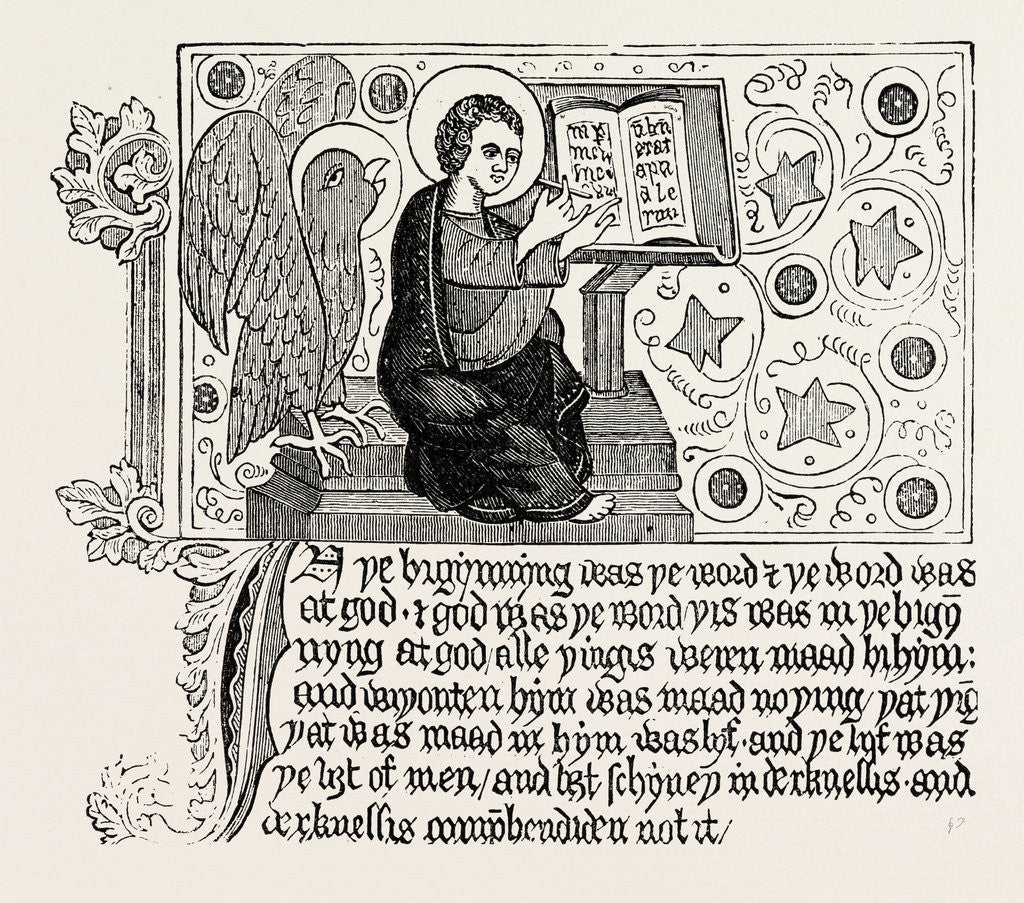 erat
apu
IN ye bigynnyng was ye word ⁊ ye word was
at god · ⁊ god was ye word yis was in ye bigyn̄
nyng at god / alle yingis weren maad bi hym :
and wiyouten hym was maad no ying / yat yīg
yat was maad in hym was lyf · and ye lyf was
ye liȝt of men / and liȝt schyney in derknessis · and
derknessis comp̄hendiden not it /